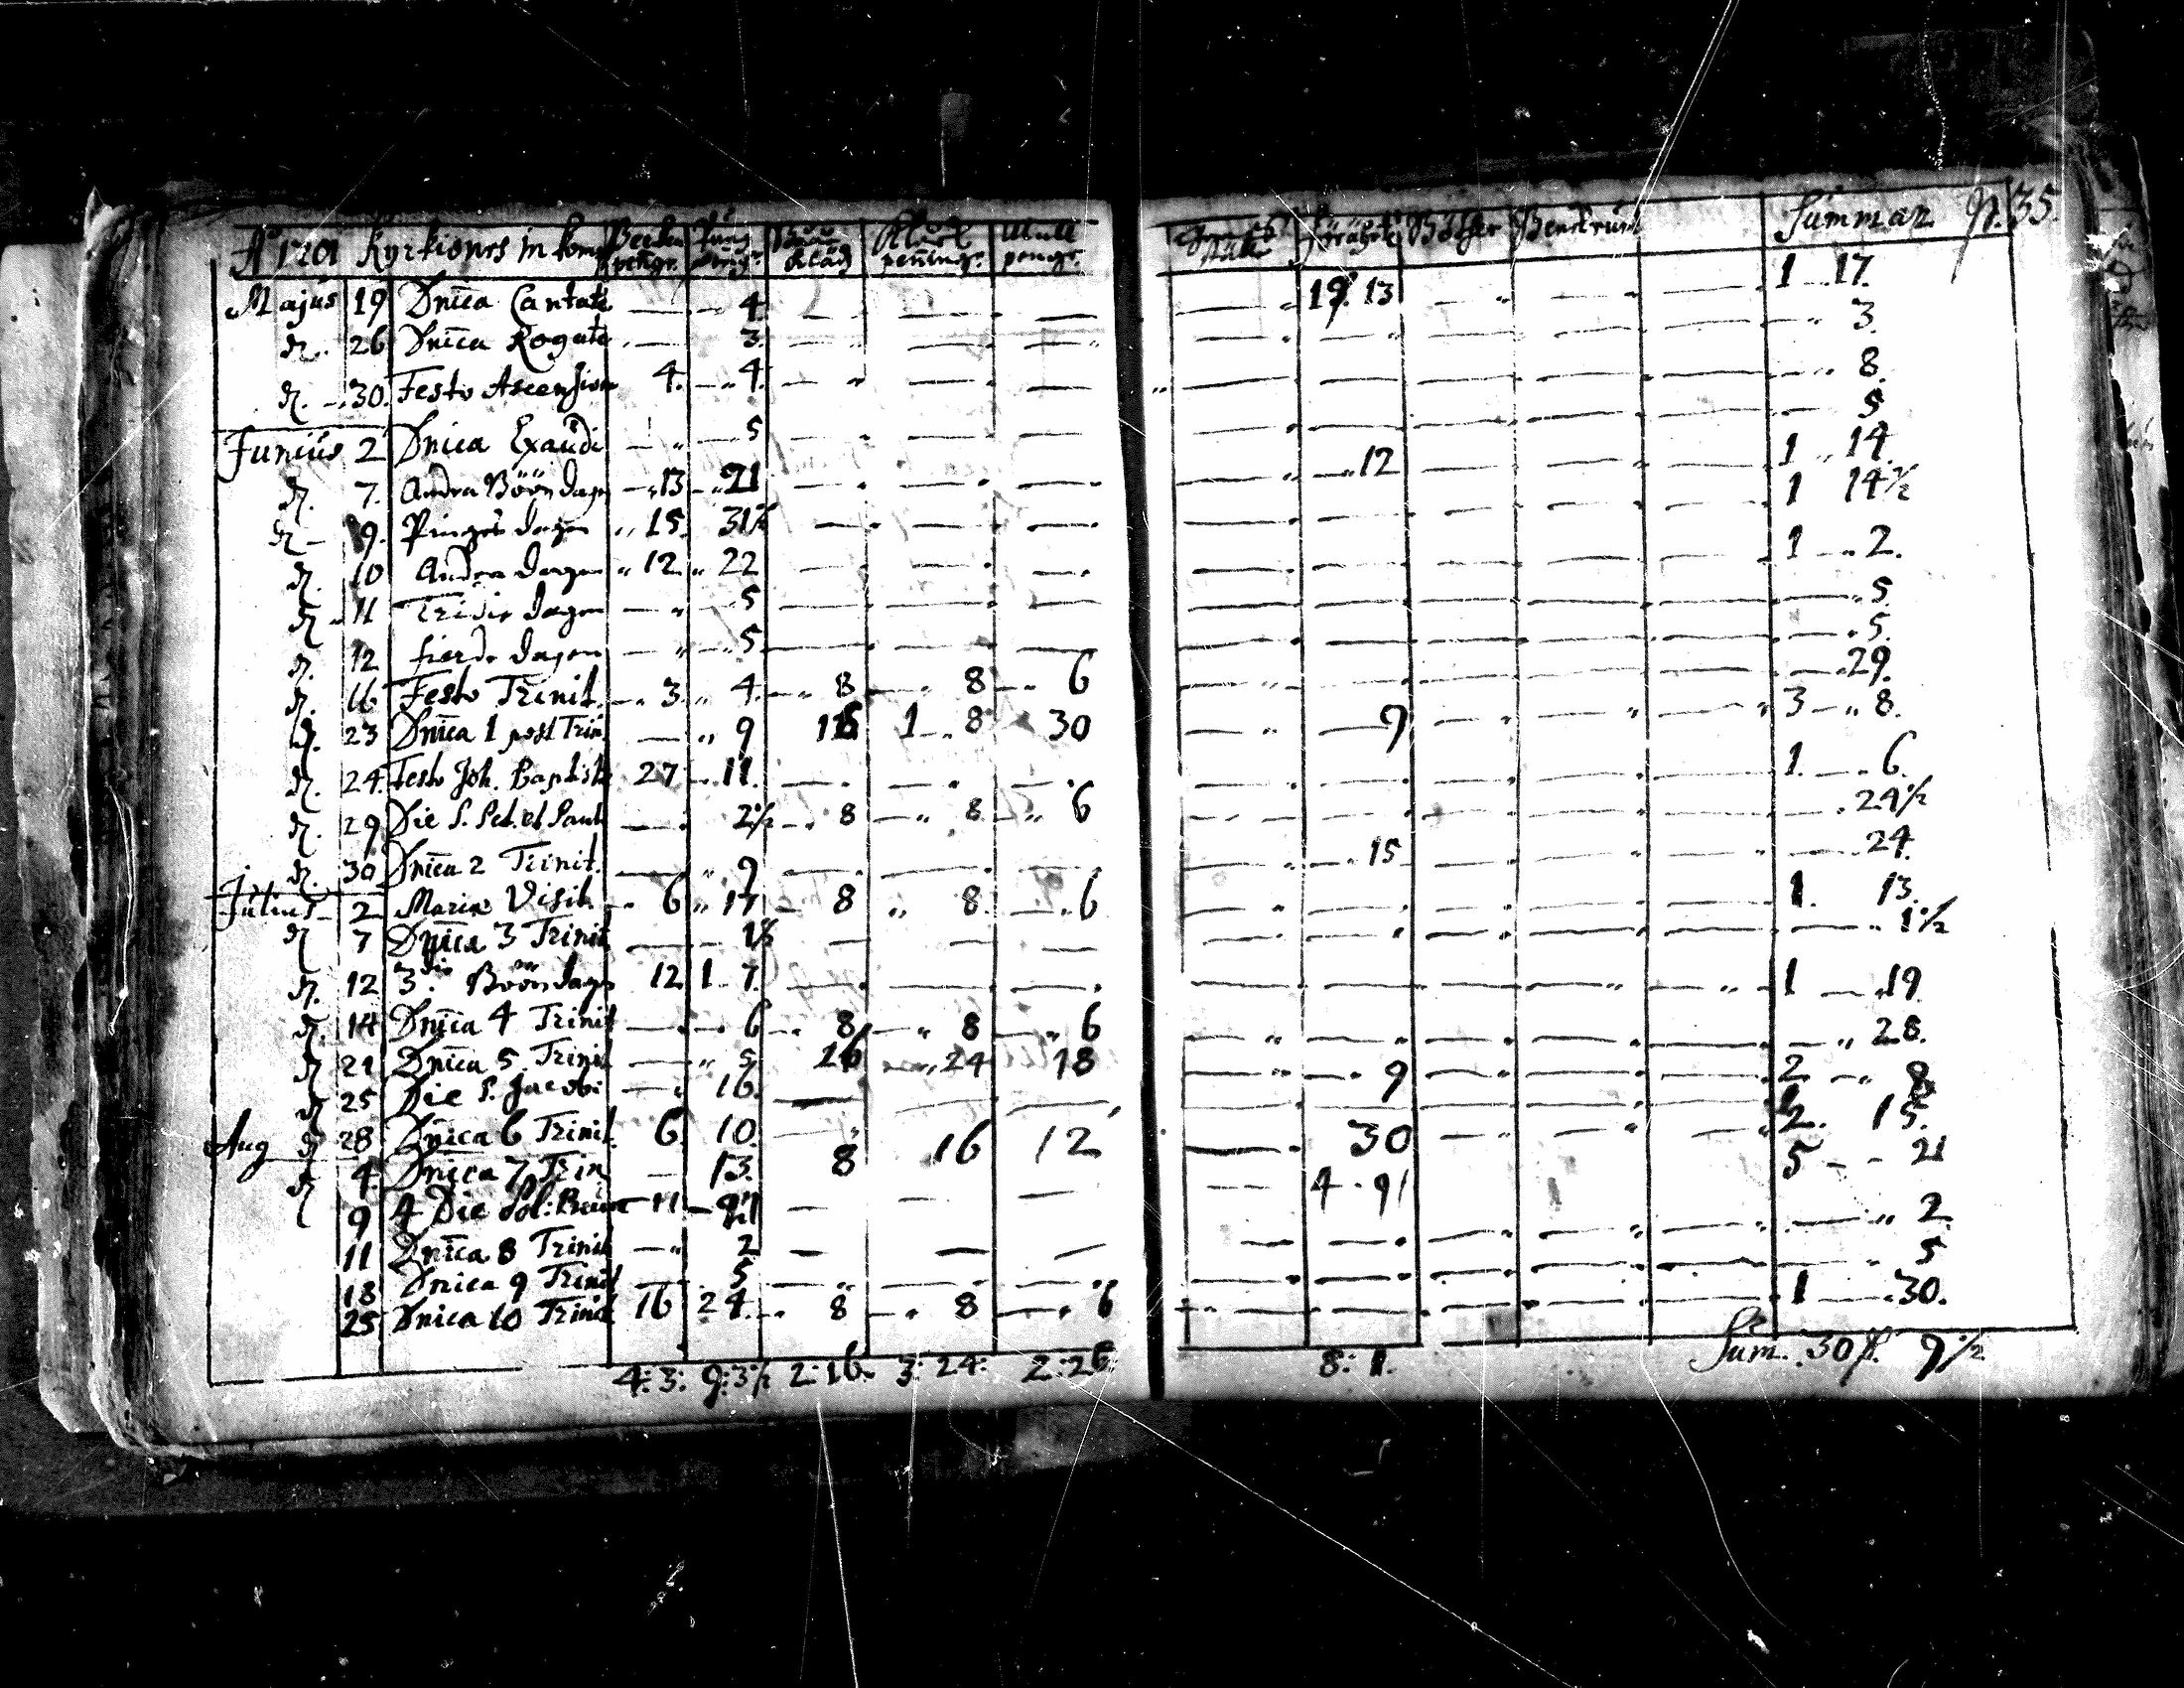 Aº 1701 Kyrkiones in kom Becken pengr. tafl pengr. Book kläd Klock peningr. Mull pengr. ställe förährt Böther Benkrum Summan p. 35.
Majus 19 Dnica Cantate — — 4. — — — — 19. 13 — — — 1 — 17.
d. 26 Dnica Rogate — 3 — — — — — — — — — 3.
d. 30. Festo Ascension 4. — 4. — — — — — — — — — 8.
Junius 2 Dnica Exaudi — — 5 — — — — — — — — — 5
d. 7. Andra Böön dagn — 13 — 21 — — — — — 12 — — — 1 „ 14.
d. 9. Pinges dagen „ 15. 31½ — — — — — — — — 1 14½
d. 10 Andra dagen „ 12. „ 22 — — — — — — — — 1 — 2.
d. 11 Tridie dagen — — 5 — — — — — — — — — 5.
d. 12 fierde dagen — — 5 — — — — — — — — — 5.
d. 16 Festo Trinit. — 3. „ 4. — 8 — 8 — 6 — — — — — — 29.
d. 23 Dnica 1 post Trin. — „ 9 1 „ 8 30 — — 9 — — — 3 — „ 8.
d. 24. Festo Joh. Baptistæ 27 — 11. — — — — — — — — 1. — 6.
d. 29 Die S. Pet. et Paul — 2½ — 8 — 8 — 6 — — — — — — 24½
d. 30 Dnica 2 Trinit. — „ 9 — — — — — 15 — — — — 24.
Julius 2 Mariæ Visit. — 6 „ 17 — 8 „ 8. — 6 — — — — — 1. 13.
d. 7 Dnica 3 Trinit — — 1½ — — — — — — — — — 1½
d. 12 3die Böön dagn 12 1 — 7. — — — — — — — — 1 — 19
d. 14 Dnica 4 Trinit — — 6 — 8 — 8 — 6 — — — — — — 28.
d. 21 Dnica 5. Trinit — „ 5 26 — 24 18 — — 9 — — — 2 — 8
d. 25 Die S. Jacobi — 16. — — — — — — — —
d. 28. Dnica 6 Trinit. 6. 10. — — 30 — — — 2. 15.
Aug 4. Dnica 7 Trin — 13. 8 16 12 — 4 . 9 5 — 21
d. 9 4 Die Sol: — 11 — — — —
11 Dnica 8 Trinit — 2 — — — — — — — — — 2
18 Dnica 9 Trinit — 5 — — — — — — — — — 5
25 Dnica 10 Trinit 16 24 — 8 — 8 — 6 — — — — — 1 — 30.
4: 3: 9: 3½ 2: 16. 3: 24: 2: 26: 8: 1. Sum. 30 9½